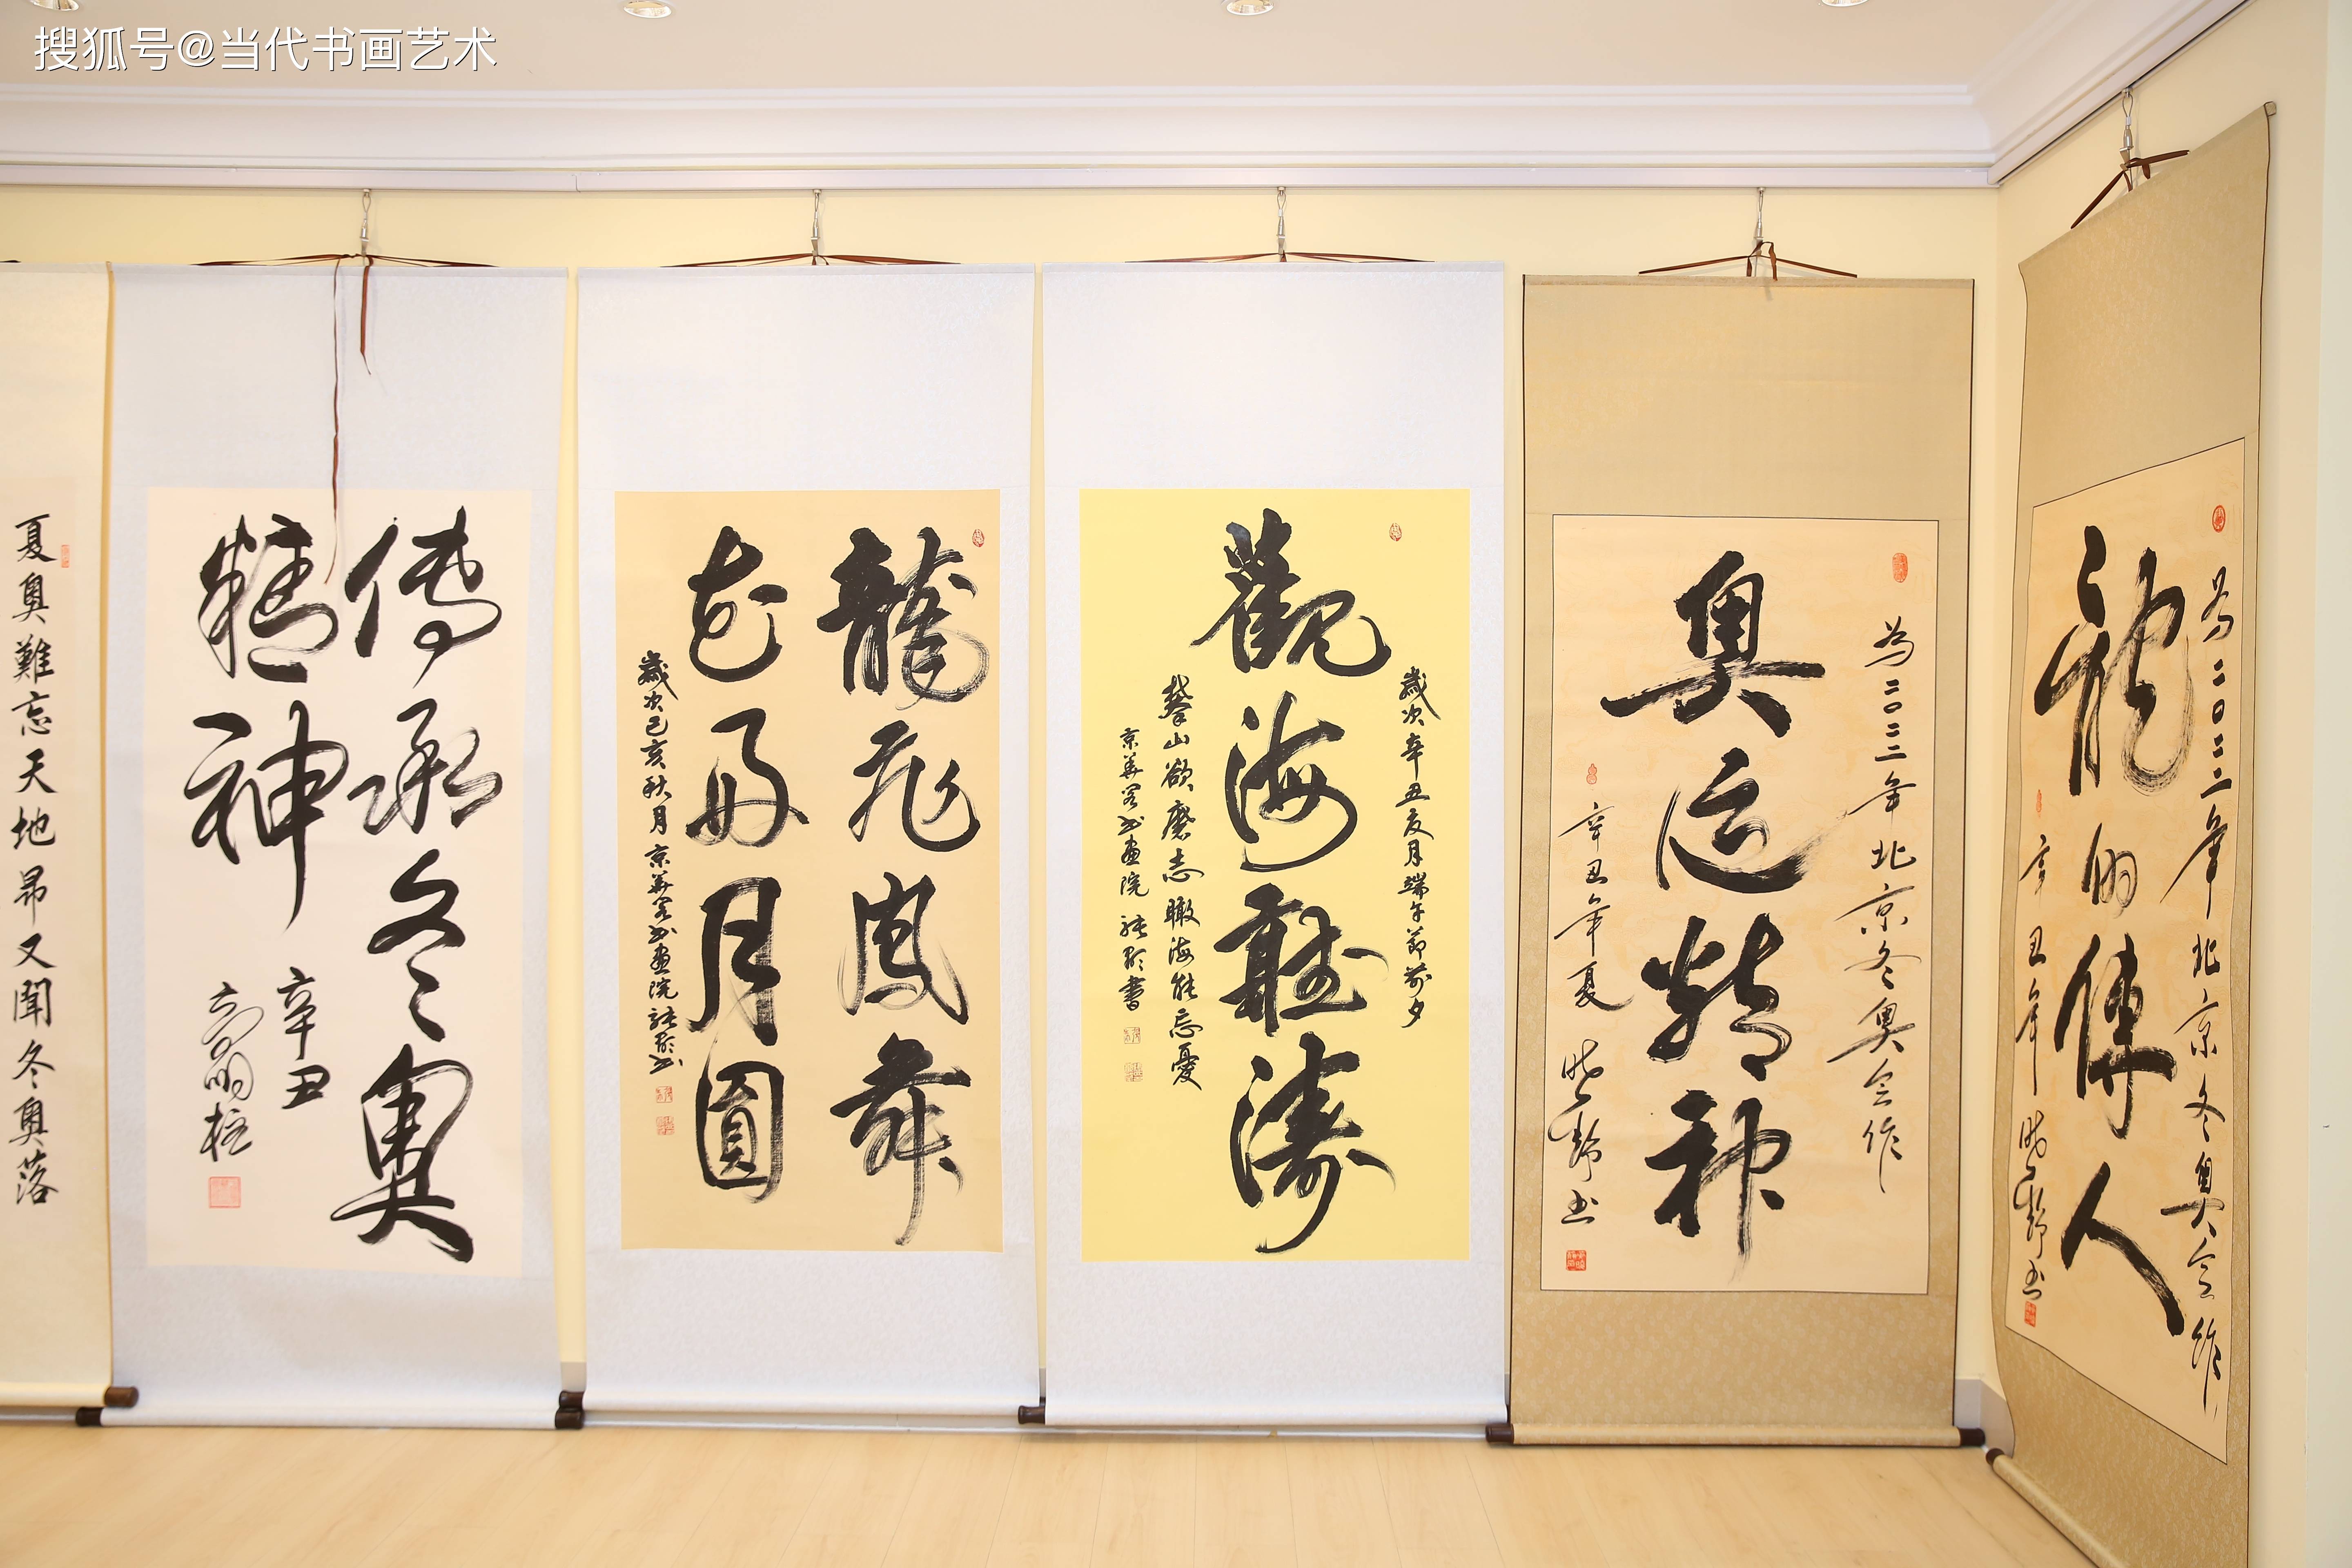 搜狐号@当代书画艺术
夏奥難忘天地昂又聞冬奥落
傳承冬奥
精神
辛丑
龍飛鳳舞
花好月圓
歲次己亥秋月京華名書畫院
歲次辛丑夏月端午節前夕
觀海聽濤
攀山欲磨志瞰海能忘憂
京華名書畫院
為二〇二二年北京冬奥会作
奥运精神
辛丑年夏
為二〇二二年北京冬奥会作
龍的傳人
辛丑年